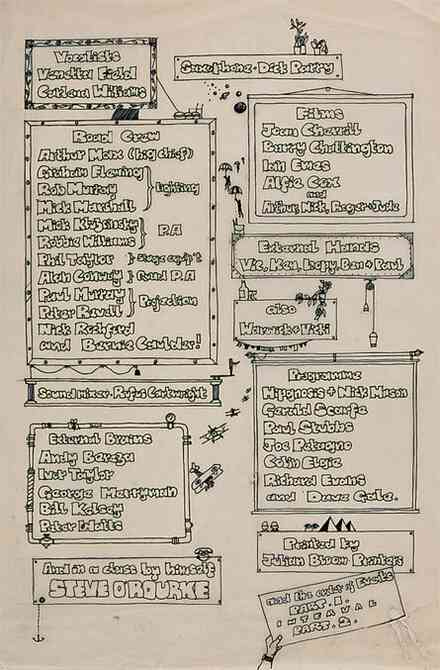 Vocalists
Vanetta Fields
Carlena Williams
Saxophone - Dick Parry
Road Crew
Arthur Max (big chief)
Graham Fleming
Rob Murray
Mick Marshall
Lighting
Mick Kluczynsky
Robbie Williams
P.A
Phil Taylor } stage equip't
Alan Conway } Quad P.A
Paul Murray
Peter Revell
Projection
Nick Rochford
and Bernie Caulder!
Sound mixer - Rufus Cartwright
External Brains
Andy Bereza
Ivor Taylor
George Merryman
Bill Kelsey
Peter Watts
And in a class by himself
STEVE O'ROURKE
Films
Joan Churrill
Barry Chattington
Iain Emes
Alfie Cox
and
Arthur, Nick, Roger + Jude
External Hands
Vic, Ken, Leapy, Ben + Paul
also
Warwick + Vicki
Programme
Hipgnosis + Nick Mason
Gerald Scarfe
Paul Stubbs
Joe Petagno
Colin Elgie
Richard Evans
and Dave Gale.
Printed by
Julian Bloom Printers
And the order of Events
PART. 1.
INTERVAL
PART. 2.